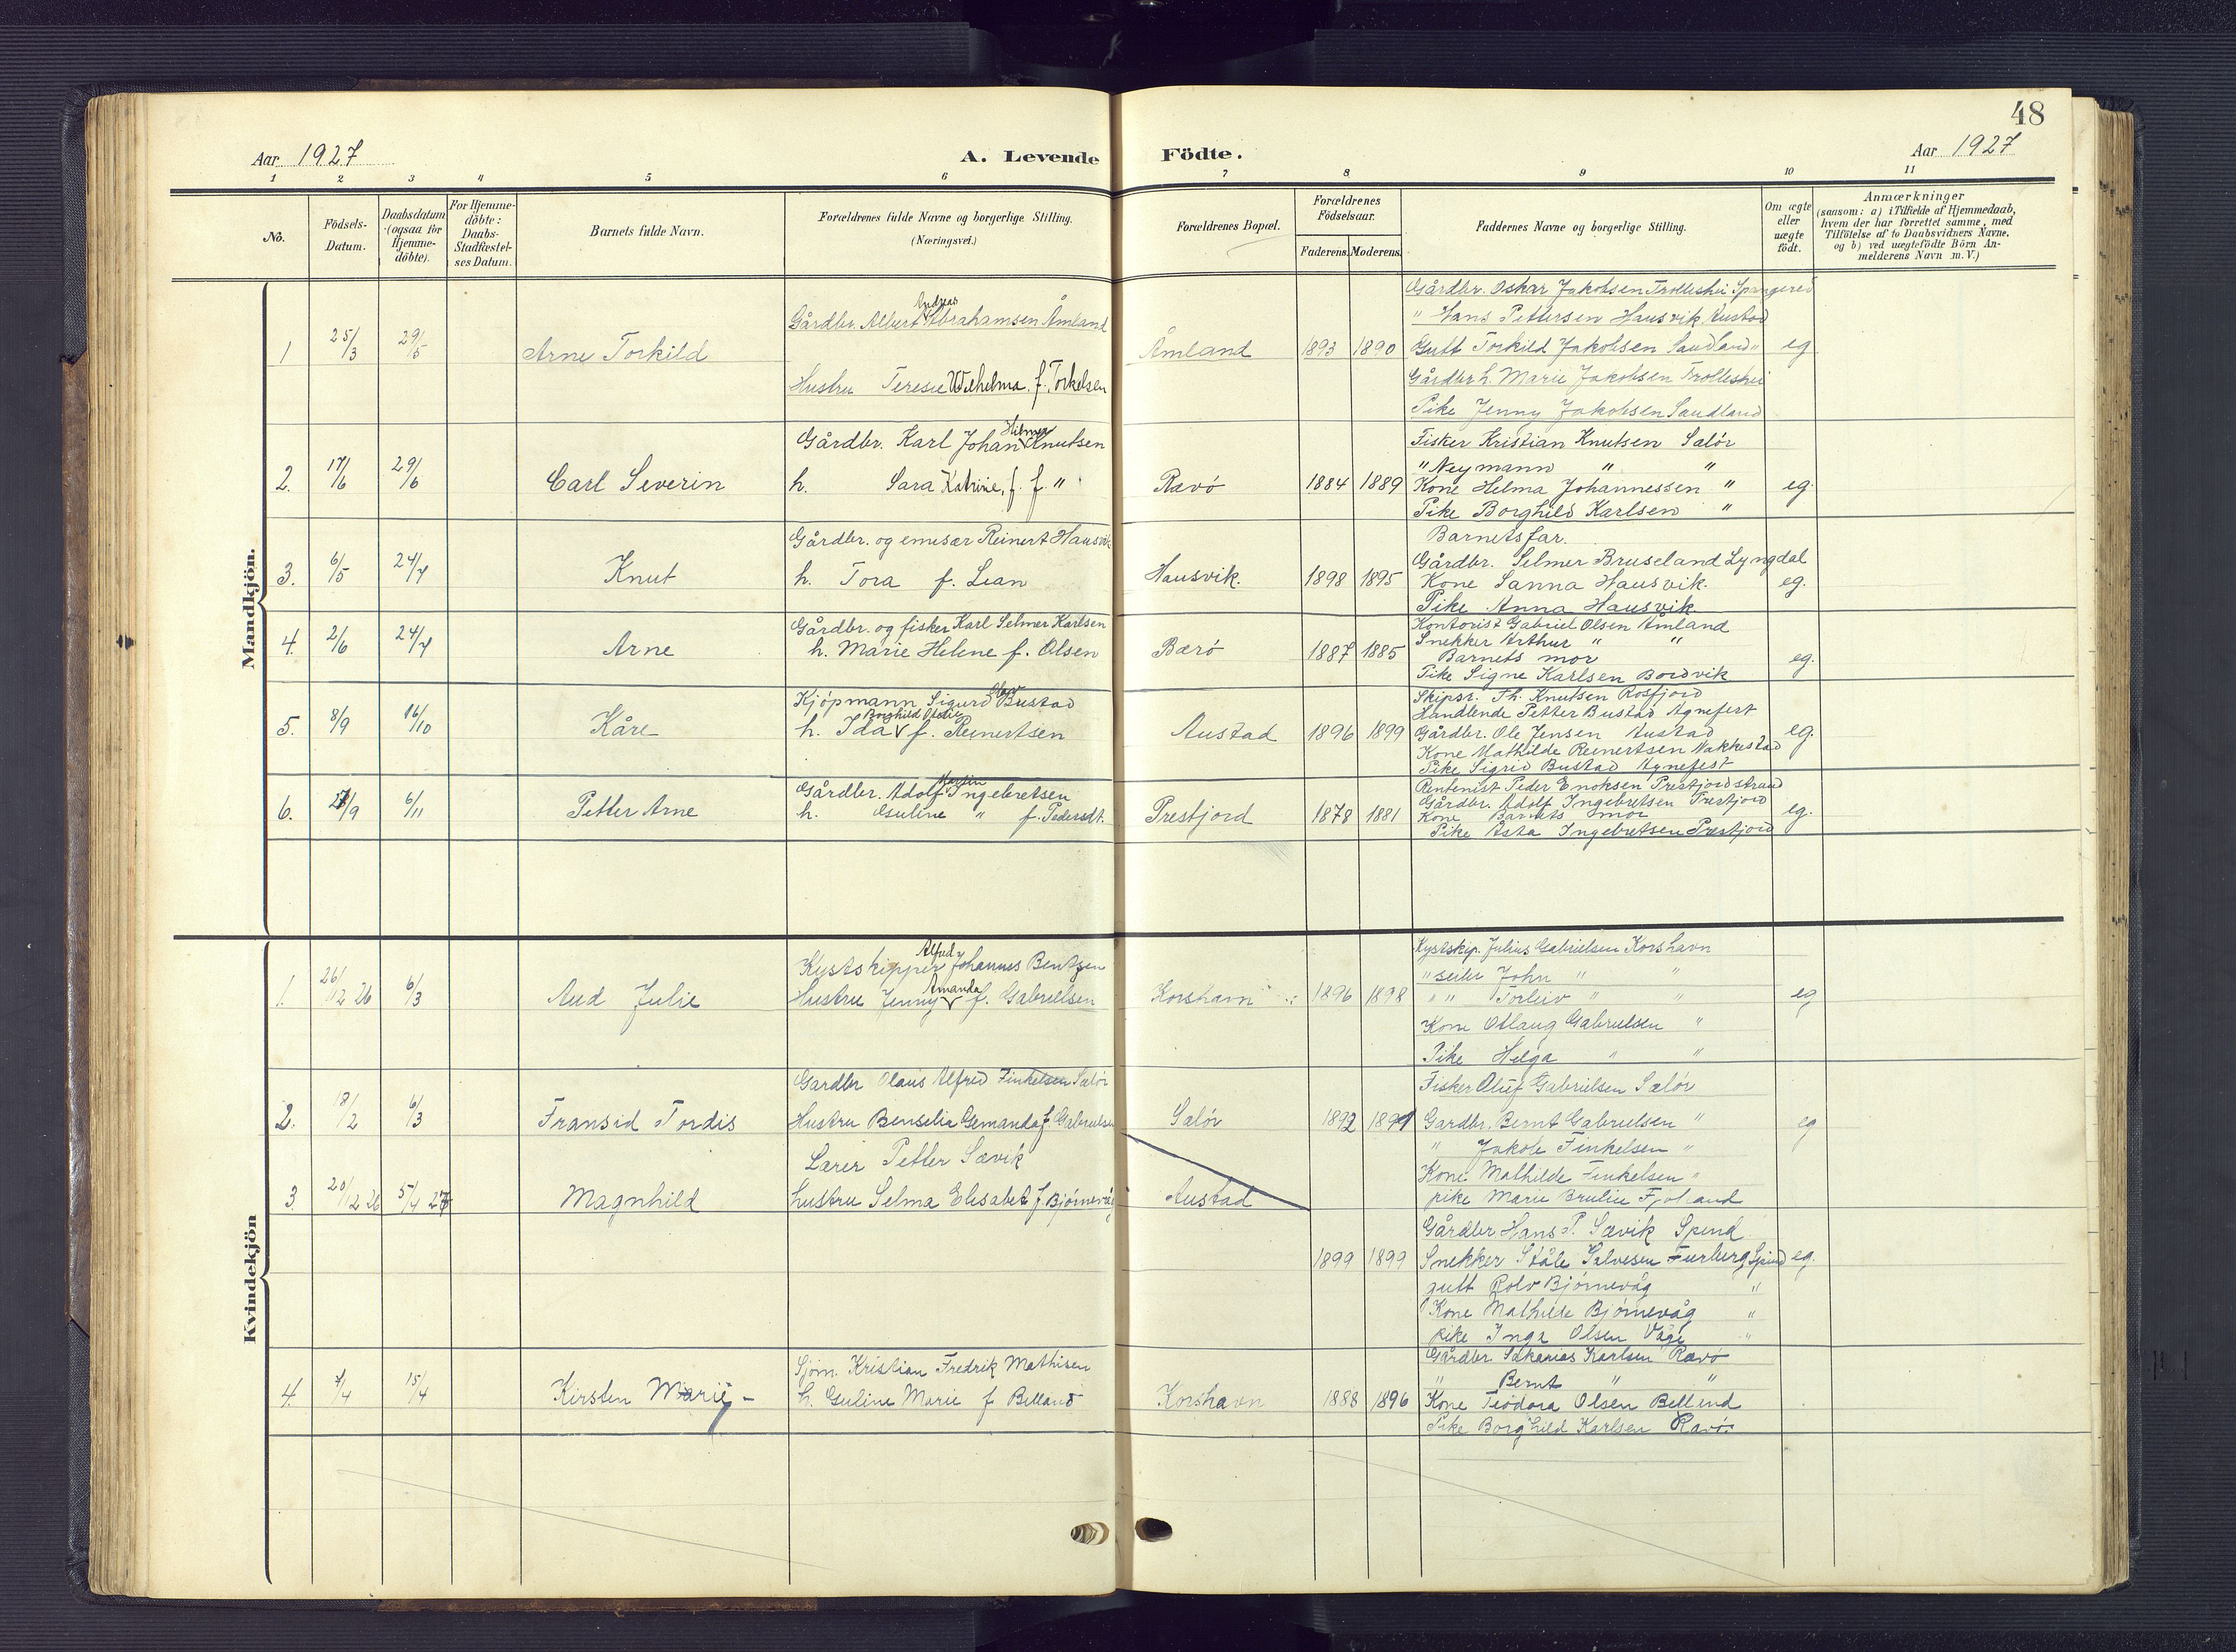 48
Aar 1927
A. Levende Födte.
Aar 1927
1 2 3 4 5 6 7 8 9 10 11
No.
Födsels-
Datum.
Daabsdatum
(ogsaa for
Hjemme-
döbte).
For Hjemme-
döbte:
Daabs-
Stadfæstel-
ses Datum.
Barnets fulde Navn.
Forældrenes fulde Navne og borgerlige Stilling.
(Næringsvei.)
Forældrenes Bopæl.
Forældrenes
Födselsaar.
Faderens. Moderens.
Faddernes Navne og borgerlige Stilling.
Om ægte
eller
uægte
födt.
Anmærkninger
(saasom: a) i Tilfælde af Hjemmedaab,
hvem der har forrettet samme, med
Tilföielse af to Daabsvidners Navne,
og b) ved uægtefödte Börn An-
melderens Navn m. V.)
Mandkjön.
1 25/3 29/5 Arne Torkild
Andreas
Gårdbr. Albert Abrahamsen Åmland
Hustru Terese Wilhelma, f. Torkelsen
Åmland 1893 1890 eg
Gårdbr. Oskar Jakobsen Trolleshei Spangereid
" Hans Pettersen Hausvik Austad
Gutt Torkild Jakobsen Sandland "
Gårdbr h. Marie Jakobsen Trolleshei
Pike Jenny Jakobsen Sandland
2. 17/6 29/6 Carl Severin
Hilmar
Gårdbr. Karl Johan Knutsen
h. Sara Katrine, f. f. "
Rævö 1884 1889 eg.
Fisker Kristian Knutsen Salör
" Neymann " "
Kone Helma Johannessen "
Pike Borghild Karlsen "
3. 6/5 24/7 Knut
Gårdbr. og emesær Reinert Hausvik
h. Tora f. Lian
Hausvik. 1898 1895 eg.
Barnets far.
Gårdbr. Selmer Bruseland Lyngdal
Kone Sanna Hausvik.
Pike Anna Hausvik
4. 2/6 24/7 Arne
Gårdbr. og fisker Karl Selmer Karlsen
h. Marie Helene f. Olsen
Bærö 1887 1885 eg.
Kontorist Gabriel Olsen Åmland
Snekker Arthur " "
Barnets mor
Pike Signe Karlsen Bordvik
5. 8/9 16/10 Kåre
Olav
Kjöpmann Sigurd Bustad
Borghild Otelie
h. Ida f. Reinertsen
Austad 1896 1899 eg.
Skipsr. Th. Knutsen Rosfjord
Handlende Petter Bustad Agnefest
Gårdbr. Ole Jensen Austad
Kone Mathilde Reinertsen Nakkestad
Pike Sigrid Bustad Agnefest
6. /9 6/11 Petter Arne
Martin
Gårdbr. Adolf Ingebretsen
h. Gsuline " f. Pedersdt.
Prestjord 1878 1881 eg.
Rentenist Peder Enoksen Prestjordstrand
Gårdbr. Adolf Ingebretsen Prestjord
Kone Barnets mor
Pike Asta Ingebretsen Prestjord
Kvindekjön
1. 26/12 26 6/3 Aud Julie
Alfred
Kystskipper Johannes Bentzen
Amanda
Hustru Jenny f. Gabrielsen
Korshavn 1896 1898 eg
Kystskip. Julius Gabrielsen Korshavn
" John " "
" " Torleiv " "
Kone Otlaug Gabrielsen "
Pike Helga " "
2. 18/2 6/3 Fransid Tordis
Gardbr Olaus Alfred Finkelsen Salör
Hustru Benselia Gemanda f. Gabrielsen
Salör 1892 1891 eg
Fisker Oluf Gabrielsen Salör
Gardbr. Bernt Gabrielsen "
" Jakob Finkelsen "
Kone Mathilde Finkelsen "
pike Marie Fjoland
3. 20/12 26 5/4 27 Magnhild
Lærer Petter Sævik
hustru Selma Elisabet f. Bjørnevåg
Austad 1899 1899 eg.
Gårdbr Hans P. Sævik Spind
Snekker Ståle Salvesen Furberg Spind
gutt Rolv Bjørnevåg "
Kone Mathilde Bjørnevåg "
pike Inga Olsen Våge "
4. 7/4 15/4 Kirsten Marie
Sjøm. Kristian Fredrik Mathisen
h. Guline Marie f Belland
Korshavn 1888 1896
Gårdbr. Sakarias Karlsen Rævö
" Bernt " "
Kone Teodora Olsen Bellend
Pike Borghild Karlsen Rævö.